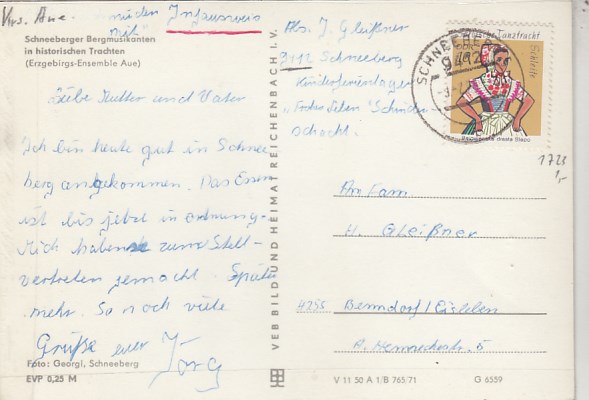 Krs. Aue
Schneeberger Bergmusikanten
in historischen Trachten
(Erzgebirgs-Ensemble Aue)
Liebe Mutter und Vater
Ich bin heute gut in Schnee
berg angekommen. Das Essen
ist bis jetzt in ordnung-
Mich haben zum Stell-
vertreter gemacht. Später
mehr. So noch viele
Grüße euer Jörg
Foto: Georgi, Schneeberg
EVP 0,25 M
VEB BILD UND HEIMAT REICHENBACH I. V.
Abs. J. Gleißner
Schneeberg
Kinderferienlager
schacht.
SCHNEEBERG
1723
1,-
An Fam.
H. Gleißner
4255 Benndorf/Eisleben
A. Hennecke str. 5
V 11 50 A 1/B 765/71
G 6559